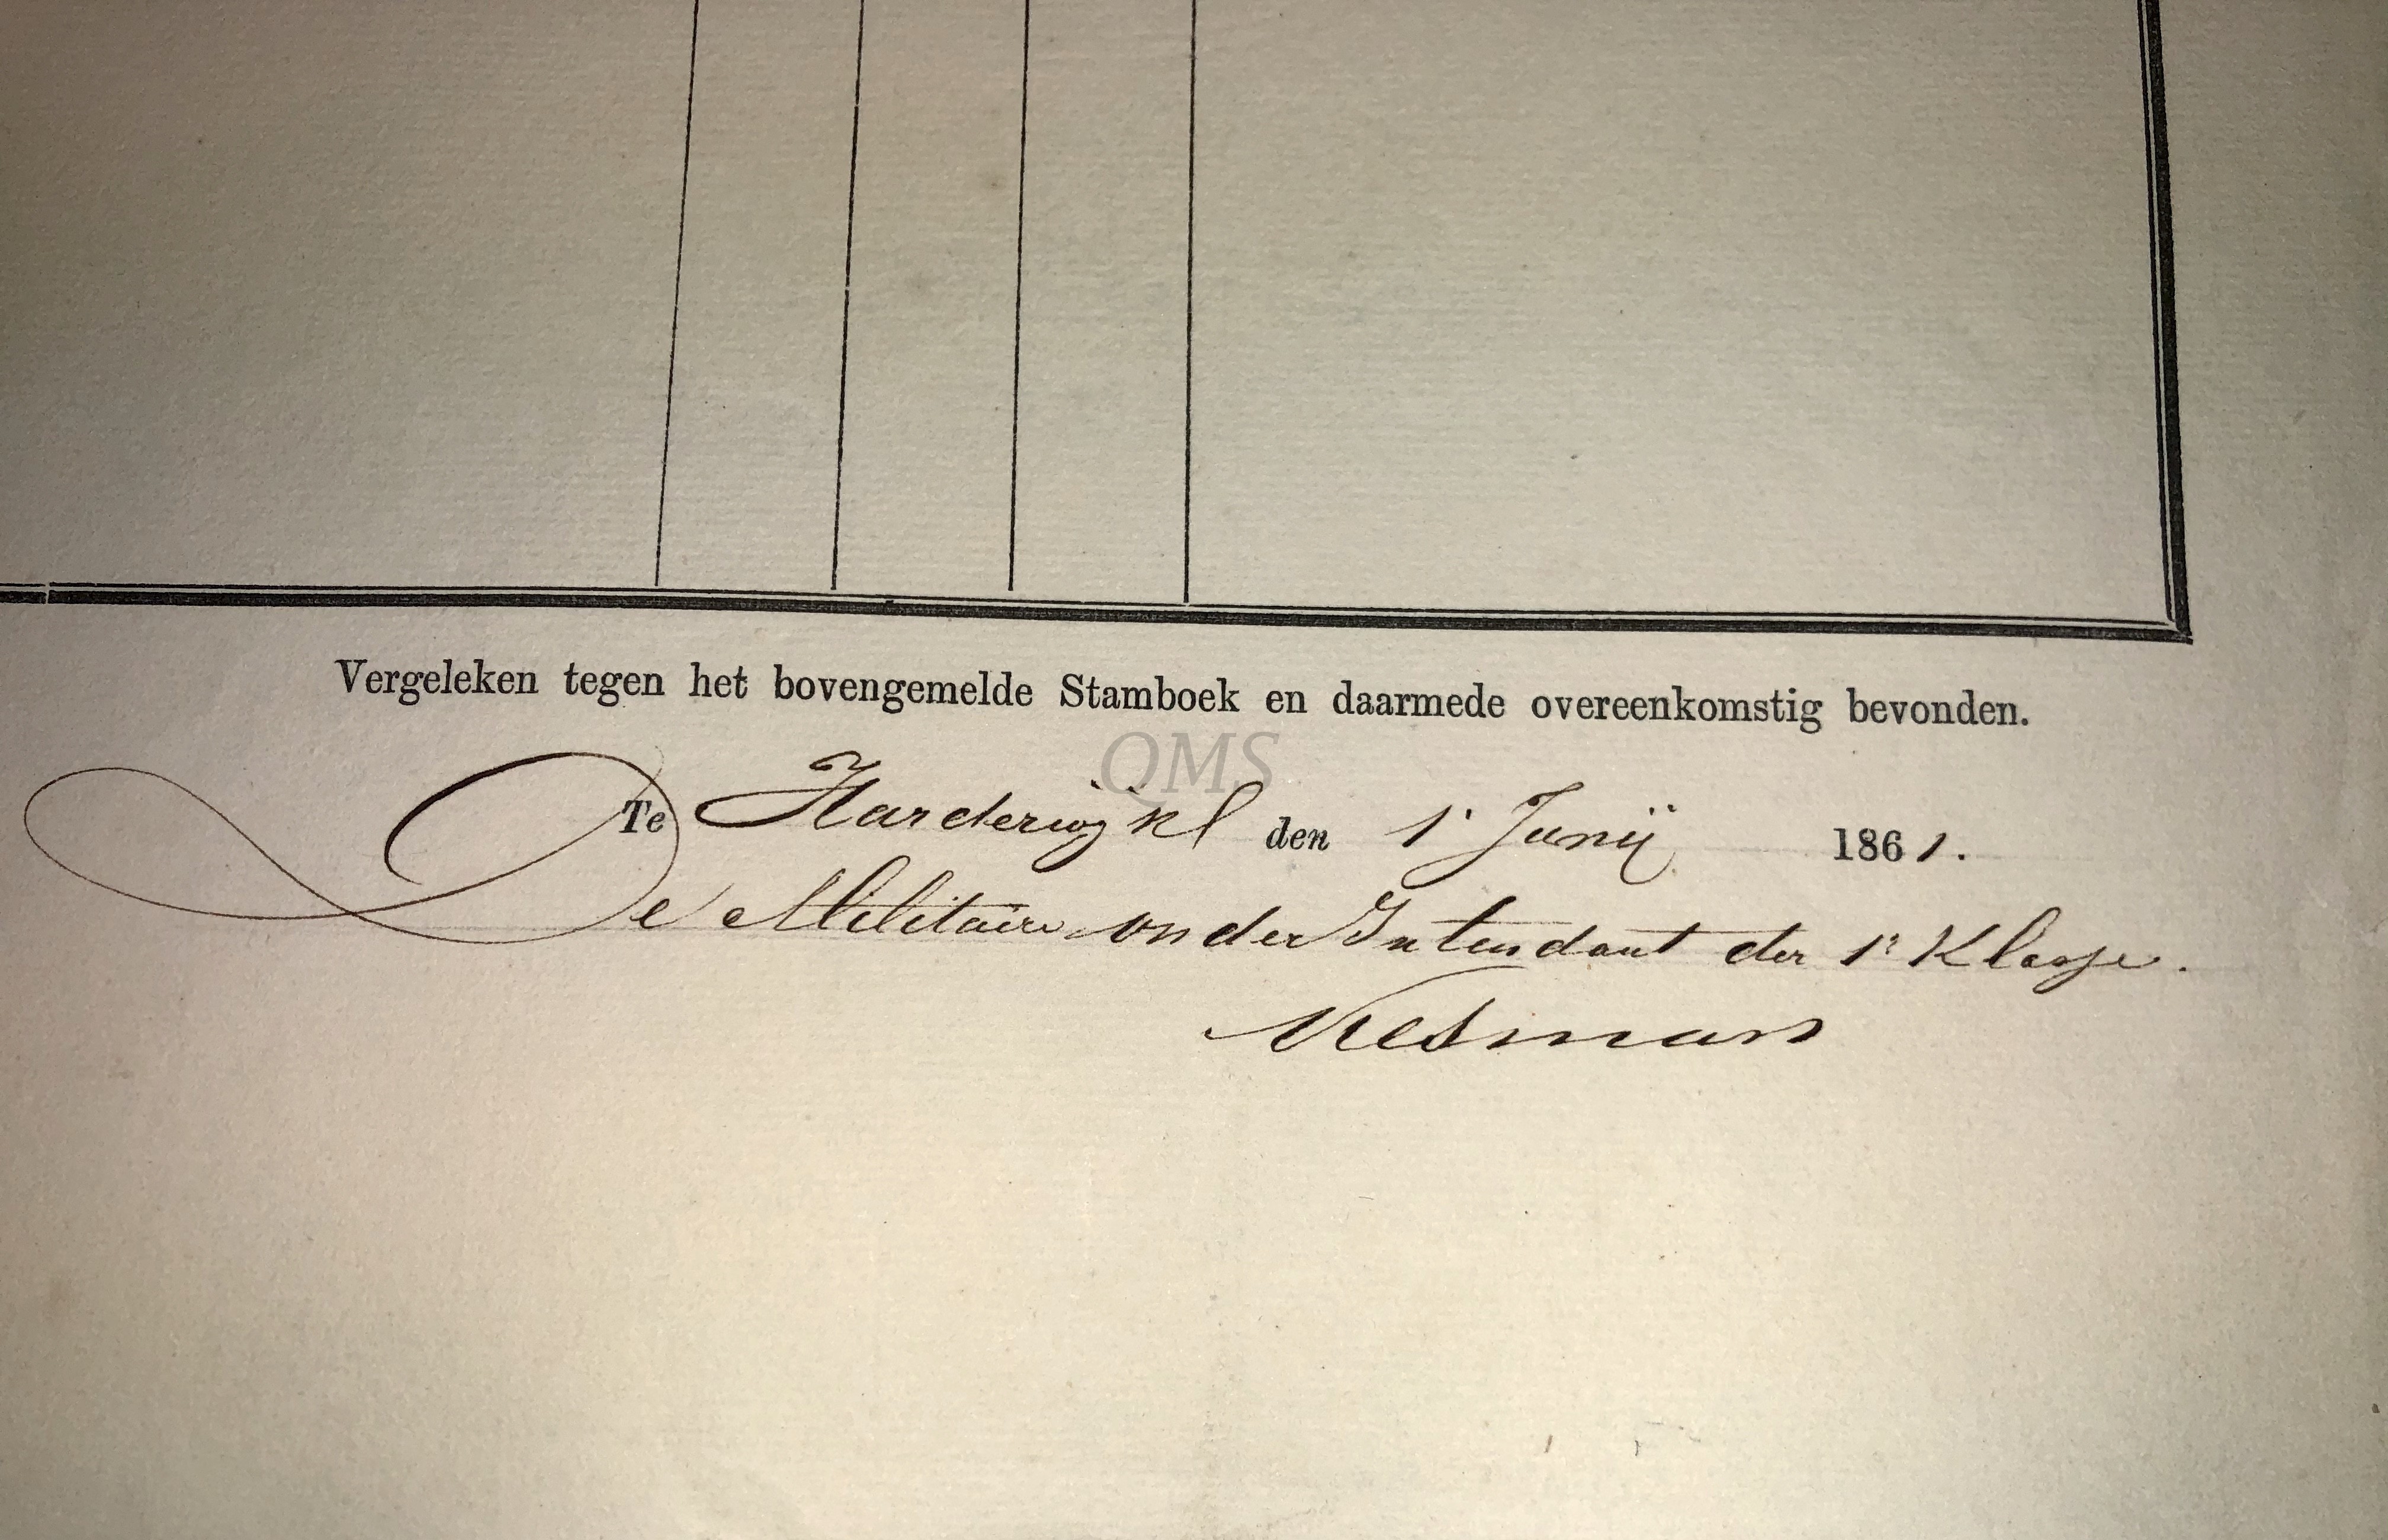 Vergeleken tegen het bovengemelde Stamboek en daarmede overeenkomstig bevonden.
QMS
Te Harderwijk den 1e Junij 1861.
De Militaire onder Intendant der 1e Klasse.
Kesman